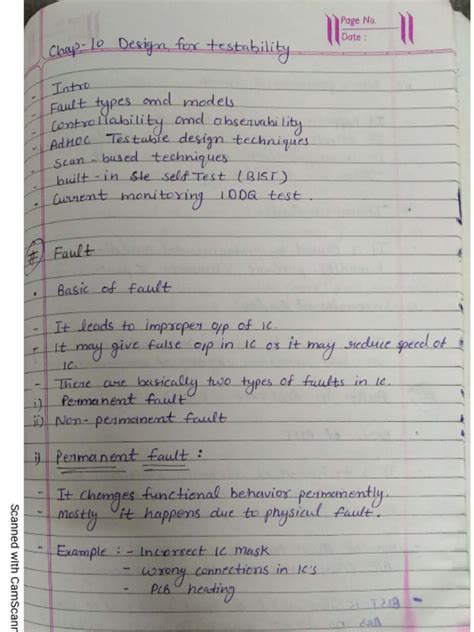 Page No.
Date :
Chap-10 Design for testability
- Intro
- Fault types and models
- Controllability and observability
- AdHOC Testable design techniques
- scan-based techniques
- built-in self Test (BIST)
- Current monitoring IDDQ test.
# Fault
• Basic of fault
- It leads to improper o/p of IC.
- It may give false o/p in IC or it may reduce speed of
IC.
- There are basically two types of faults in IC.
i) Permanent fault
ii) Non-permanent fault
i) Permanent fault :
- It changes functional behavior permanently.
- mostly it happens due to physical fault.
- Example : - Incorrect IC mask
- wrong connections in IC's
- PCB heating
Scanned with CamScanner